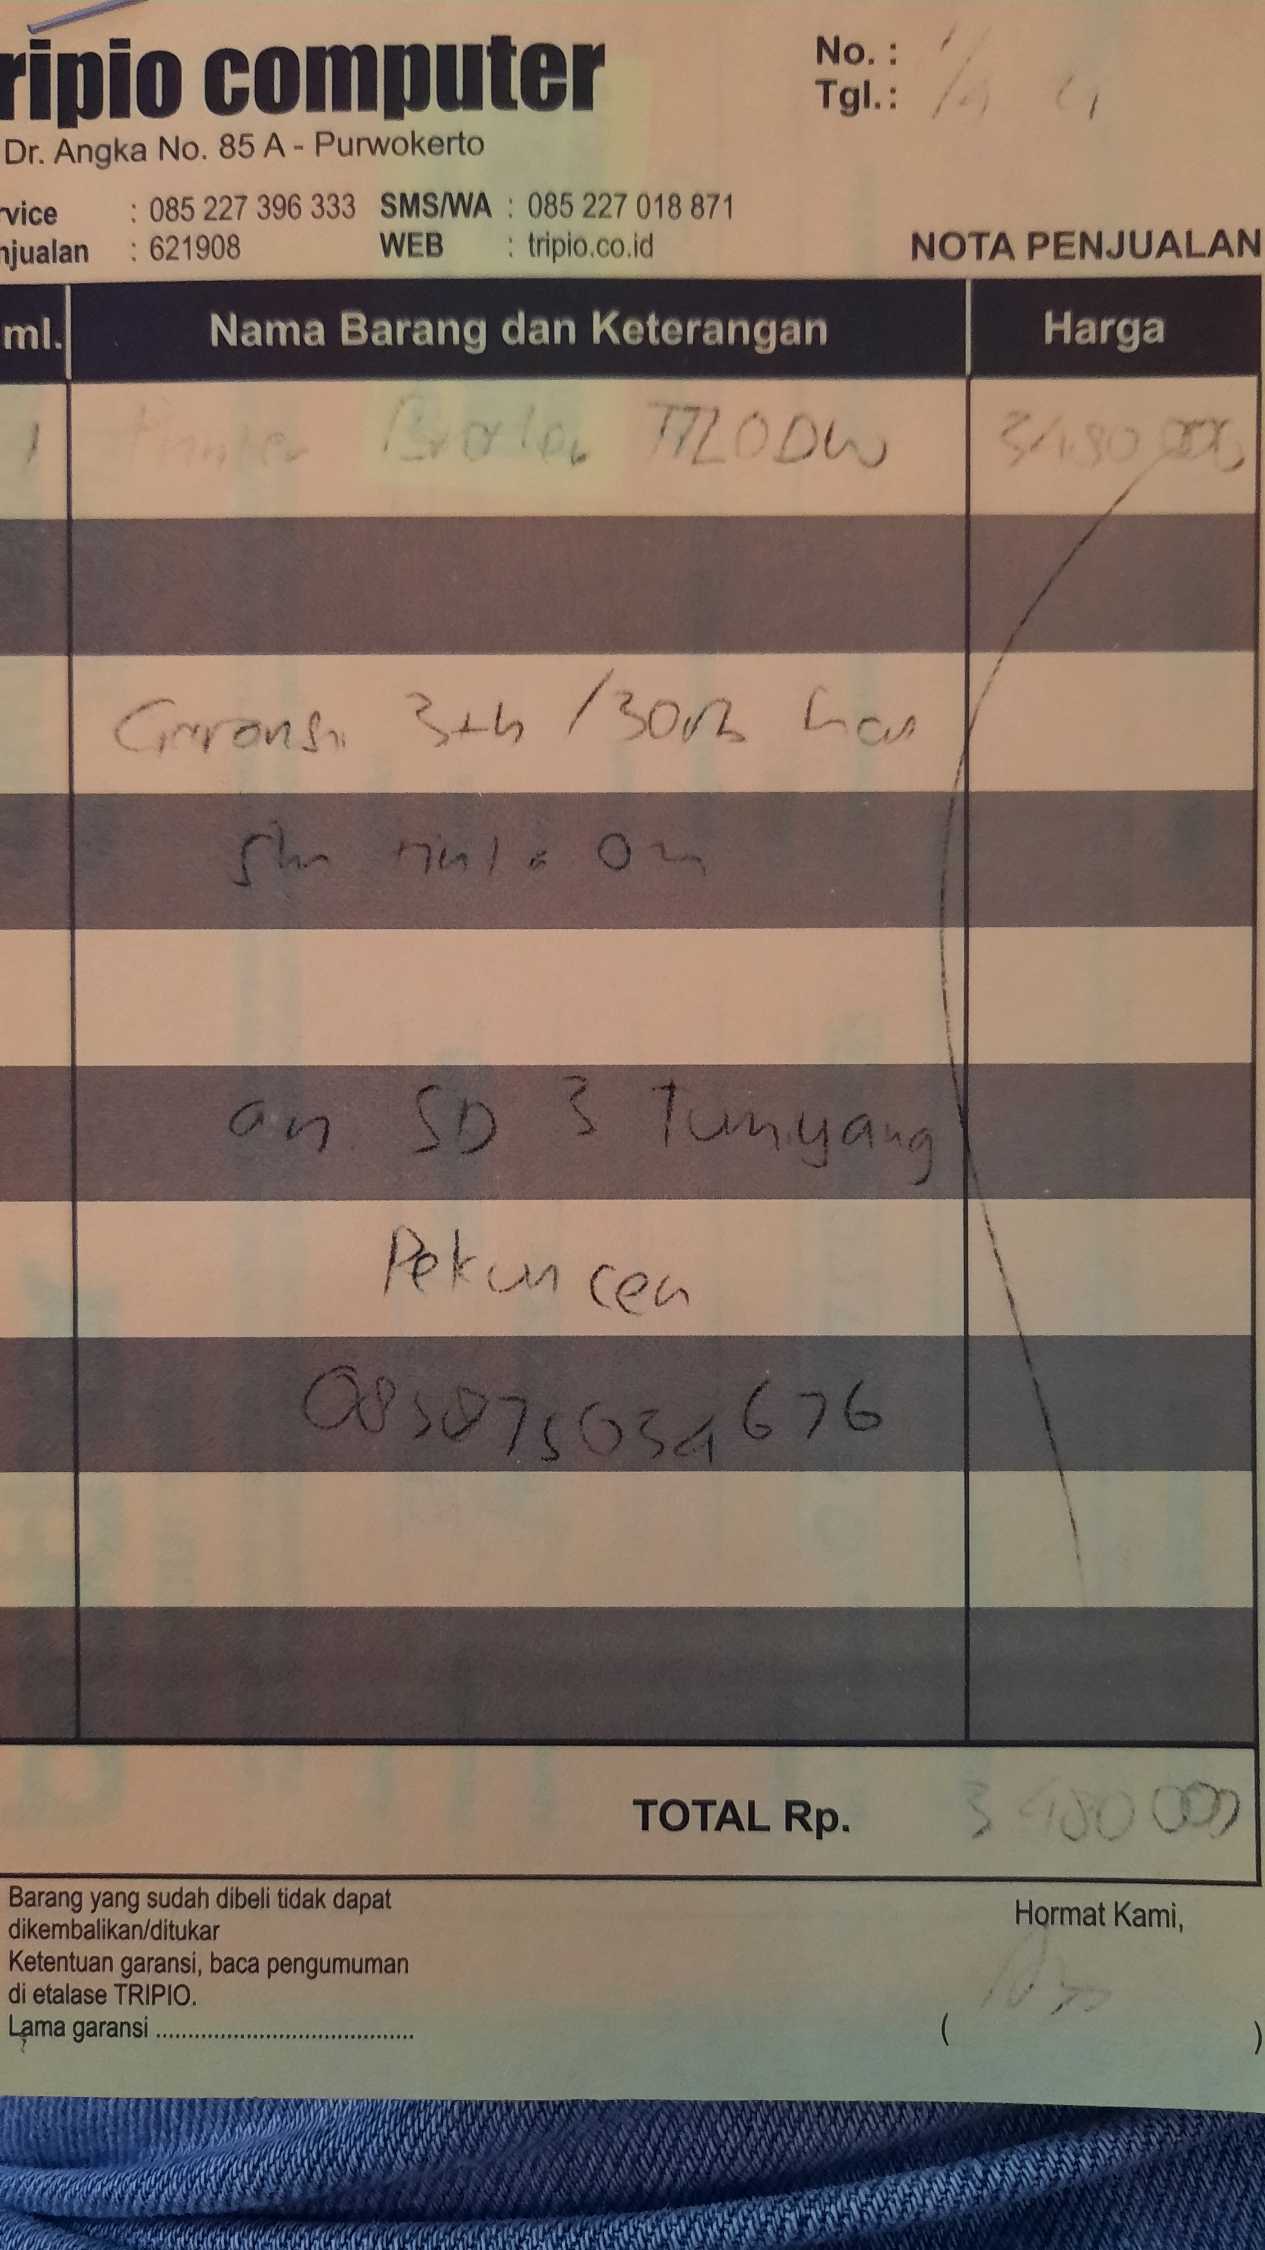 ripio computer
No. :
Tgl. :
Dr. Angka No. 85 A - Purwokerto
rvice : 085 227 396 333 SMS/WA : 085 227 018 871
njualan : 621908 WEB : tripio.co.id
NOTA PENJUALAN
ml. Nama Barang dan Keterangan Harga
1 Printer Brother T720DW 3480 000
Garansi 3th /30rb
an SD 3 Tumiyang
Pekuncen
TOTAL Rp. 3 480 000
Barang yang sudah dibeli tidak dapat
dikembalikan/ditukar
Ketentuan garansi, baca pengumuman
di etalase TRIPIO.
Lama garansi ........................................
Hormat Kami,
( )